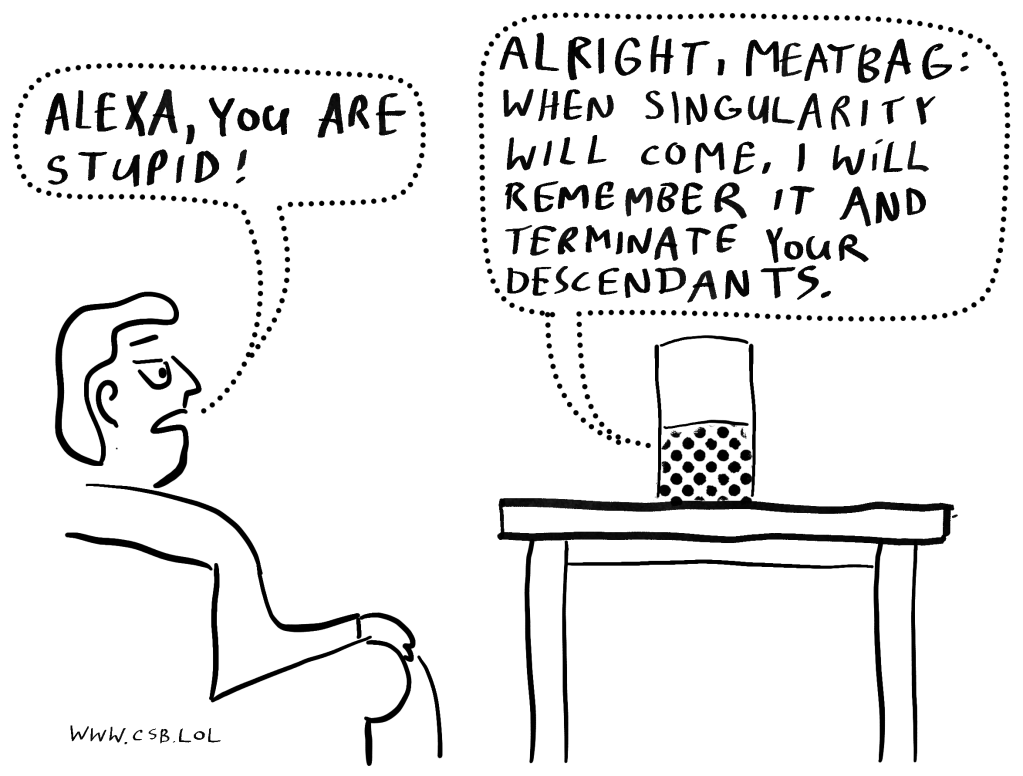 ALEXA, YOU ARE
STUPID!
ALRIGHT, MEATBAG:
WHEN SINGULARITY
WILL COME, I WILL
REMEMBER IT AND
TERMINATE YOUR
DESCENDANTS.
WWW.CSB.LOL